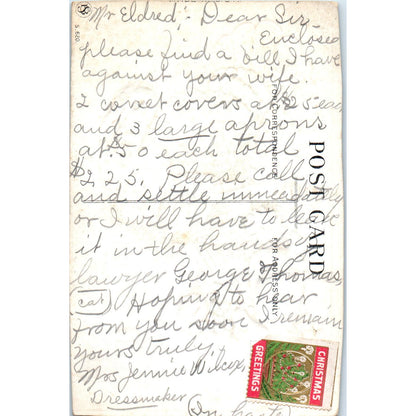 Mr Eldred; - Dear Sir
Enclosed
please find a bill I have
against your wife.
2 corset covers at $ 25 each
and 3 large aprons
at .50 each total
$2,25. Please call
and settle immediately
or I will have to leave
it in the hands of
lawyer George Thomas,
(cat) Hoping to hear
from you soon I remain
Yours truly,
Mrs Jennie Wilcox,
Dressmaker
(In haste
POST CARD
FOR CORRESPONDENCE
FOR ADDRESS ONLY
S. 620
CHRISTMAS
GREETINGS